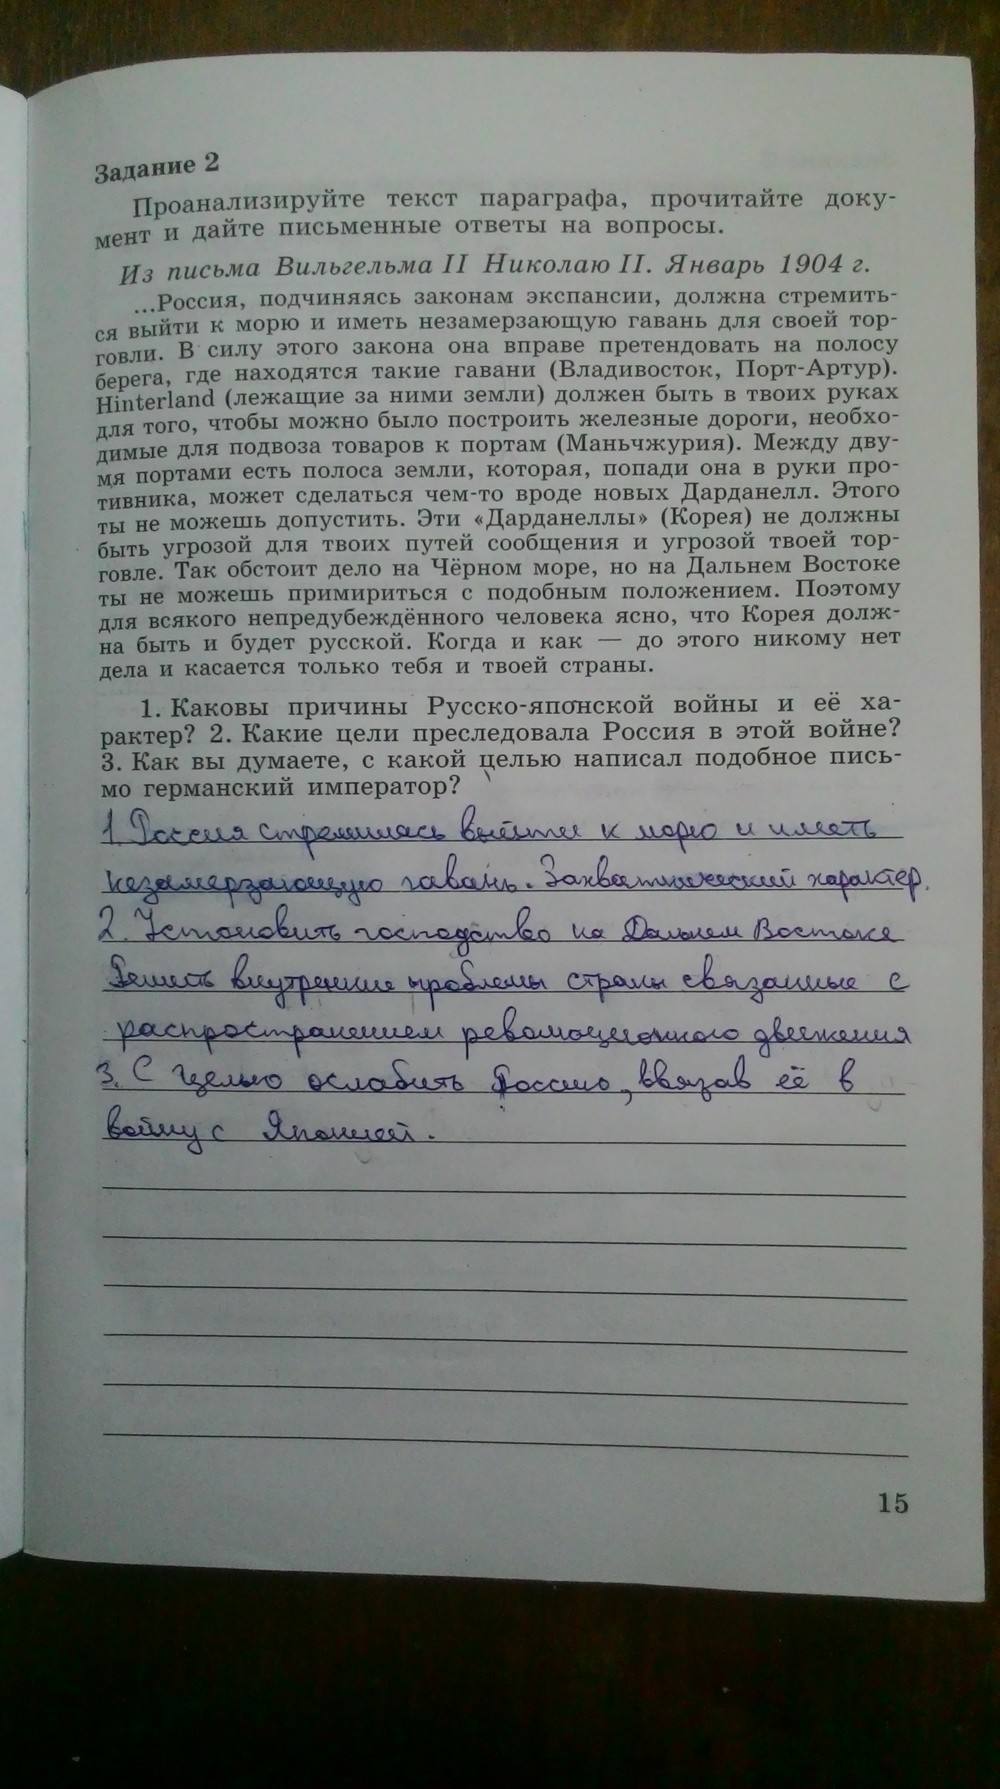 Задание 2
Проанализируйте текст параграфа, прочитайте доку-
мент и дайте письменные ответы на вопросы.
Из письма Вильгельма II Николаю II. Январь 1904 г.
...Россия, подчиняясь законам экспансии, должна стремить-
ся выйти к морю и иметь незамерзающую гавань для своей тор-
говли. В силу этого закона она вправе претендовать на полосу
берега, где находятся такие гавани (Владивосток, Порт-Артур).
Hinterland (лежащие за ними земли) должен быть в твоих руках
для того, чтобы можно было построить железные дороги, необхо-
димые для подвоза товаров к портам (Маньчжурия). Между дву-
мя портами есть полоса земли, которая, попади она в руки про-
тивника, может сделаться чем-то вроде новых Дарданелл. Этого
ты не можешь допустить. Эти «Дарданеллы» (Корея) не должны
быть угрозой для твоих путей сообщения и угрозой твоей тор-
говле. Так обстоит дело на Чёрном море, но на Дальнем Востоке
ты не можешь примириться с подобным положением. Поэтому
для всякого непредубеждённого человека ясно, что Корея долж-
на быть и будет русской. Когда и как — до этого никому нет
дела и касается только тебя и твоей страны.
1. Каковы причины Русско-японской войны и её ха-
рактер? 2. Какие цели преследовала Россия в этой войне?
3. Как вы думаете, с какой целью написал подобное пись-
мо германский император?
1. Россия стремилась выйти к морю и иметь
незамерзающую гавань. Захватнический характер.
2. Установить господство на Дальнем Востоке
Решить внутренние проблемы страны связанные с
распространением революционного движения
3. С целью ослабить Россию, ввязав её в
войну с Японией.
15